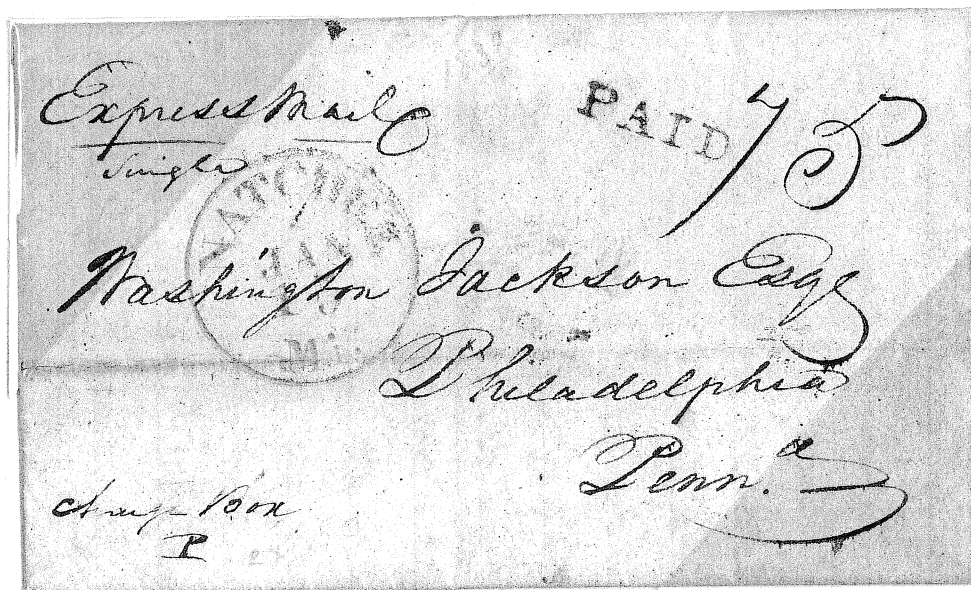 Express Mail
Single
PAID
75
NATCHEZ
JAN
Mi.
Washington Jackson Esqr
Philadelphia
Penn.a
Charge Box
P